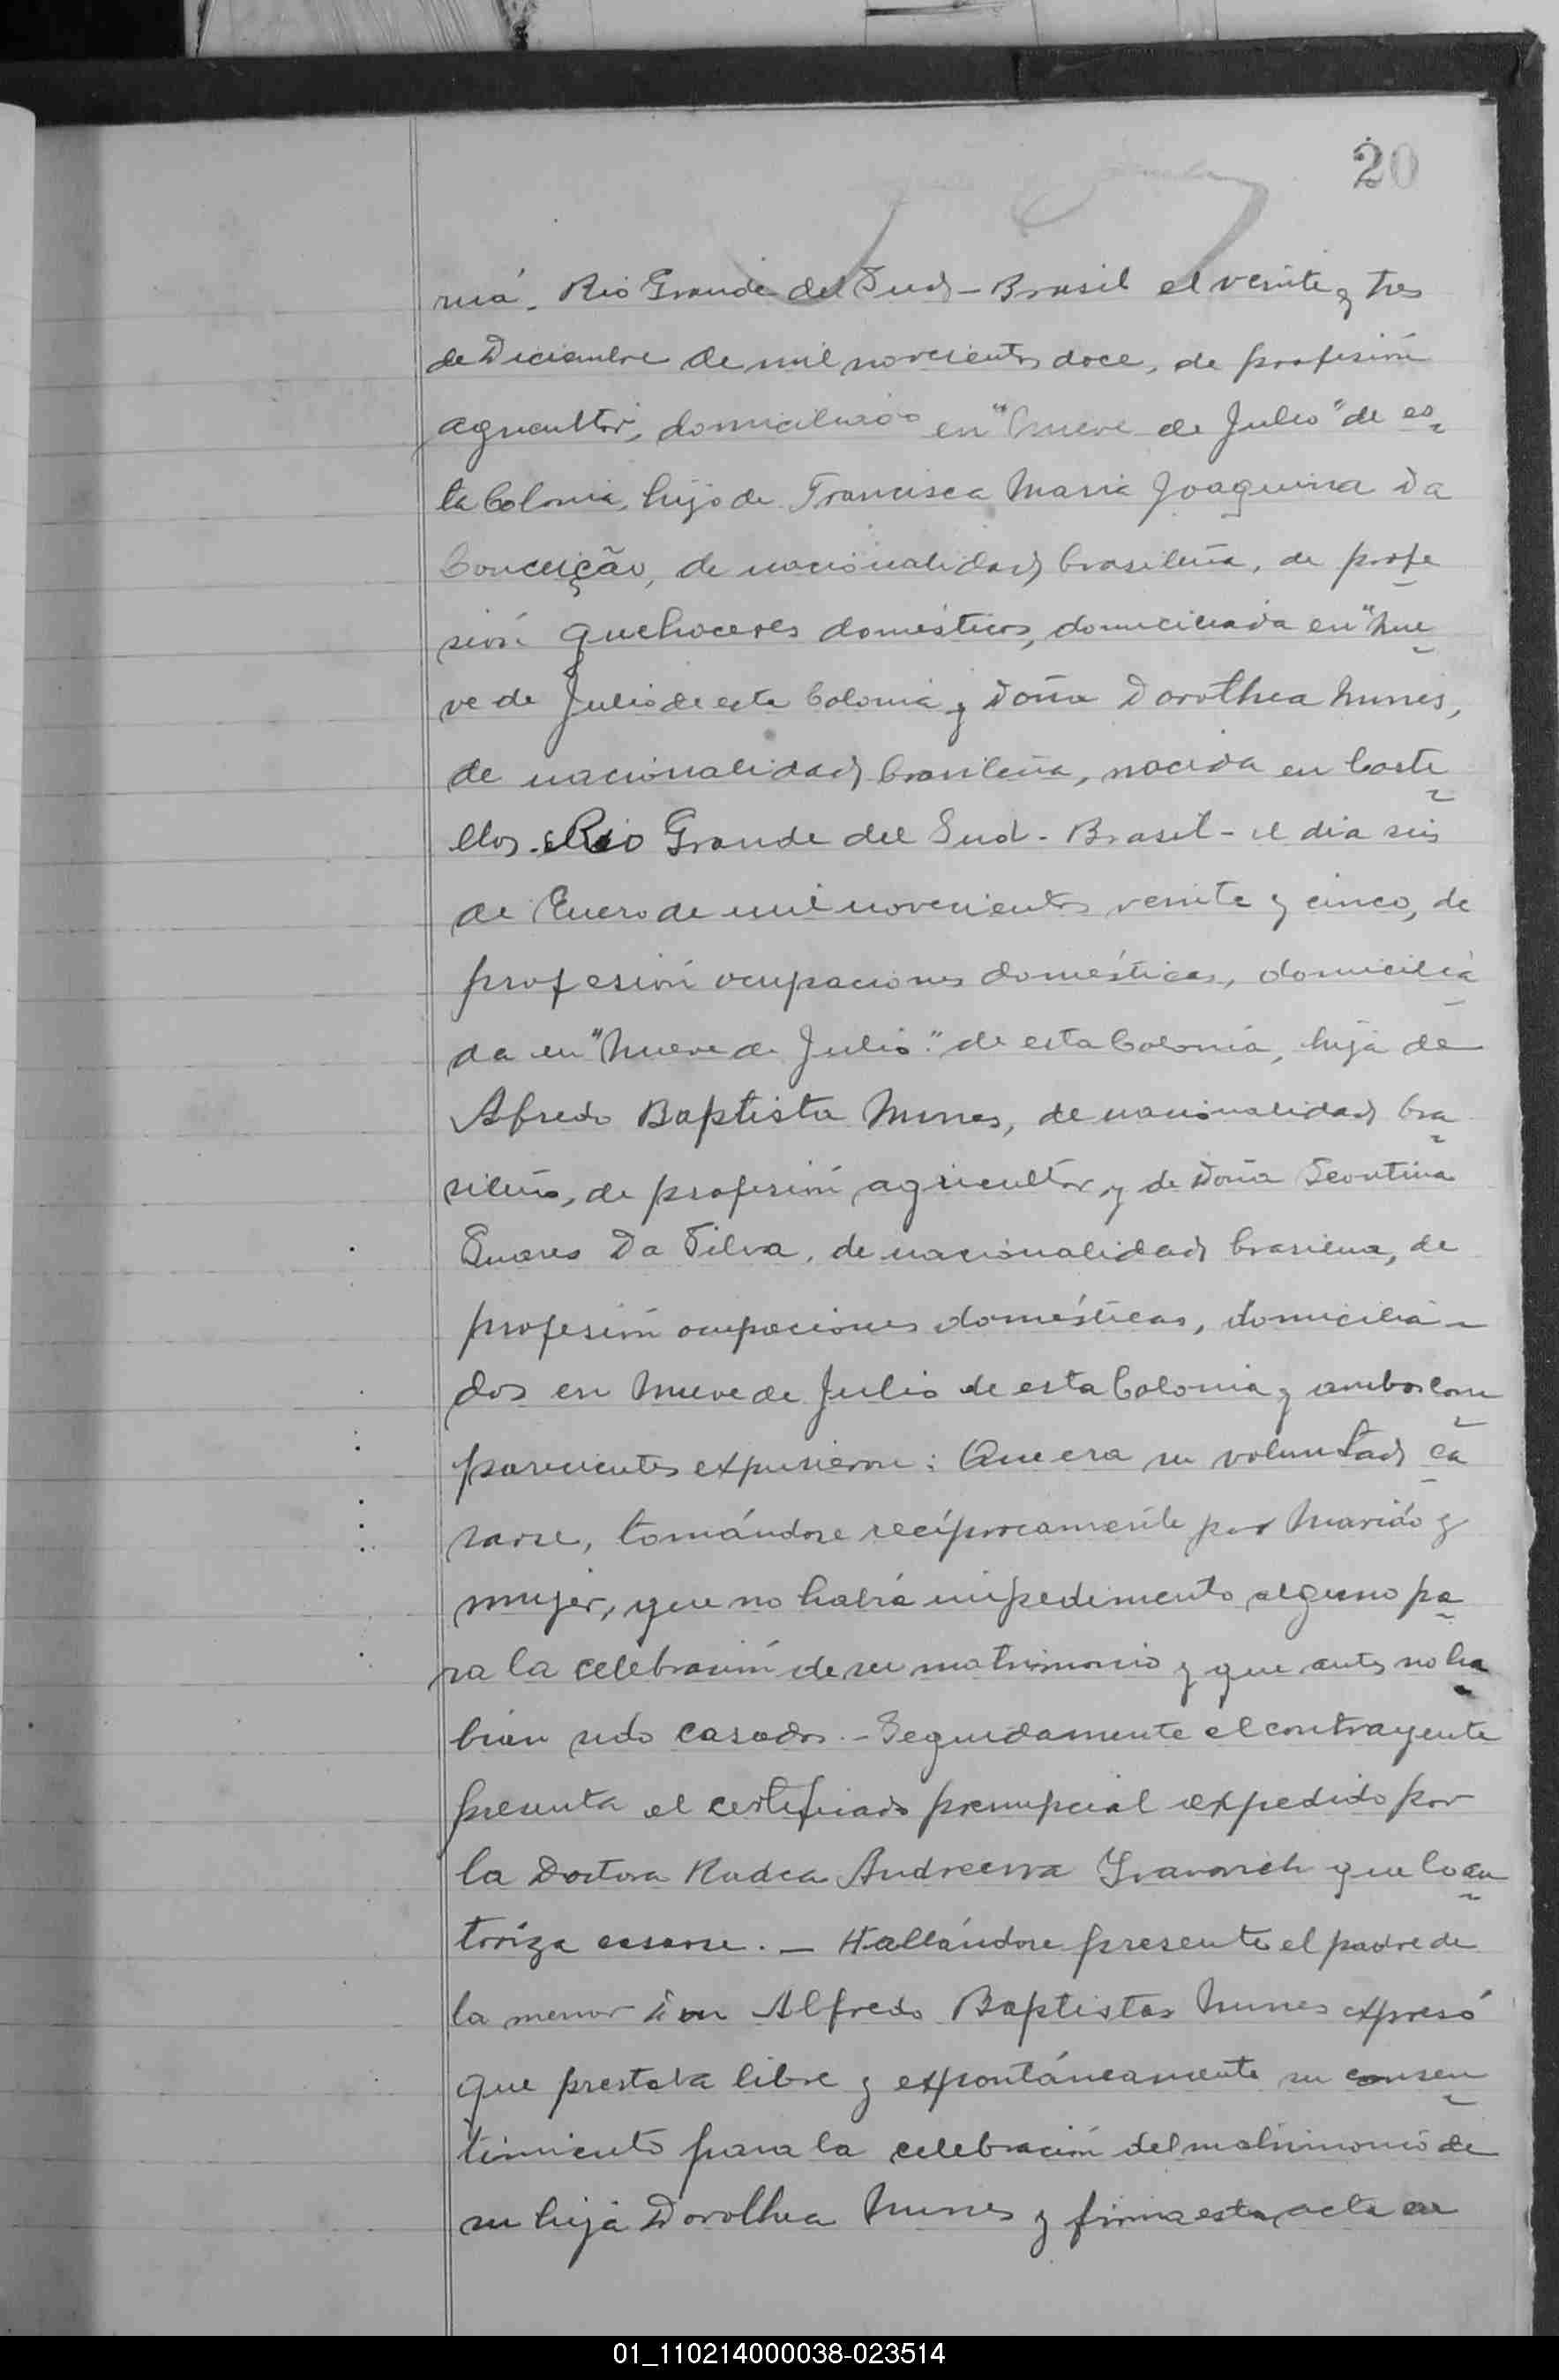 20
riá. Rio Grande del Sud - Brasil el veinte y tres
de Diciembre de mil novecientos doce, de profesión
agricultor, domiciliado en "Nueve de Julio" de es
ta Colonia, hijo de Francisca Maria Joaquina Da
Conceição, de nacionalidad brasileña, de profe
sión quehaceres domésticos, domiciliada en "Nue
ve de Julio de esta Colonia y Doña Dorothea Nunes,
de nacionalidad brasileña, nacida en Caste
llos. Rio Grande del Sud - Brasil - el dia seis
de Enero de mil novecientos veinte y cinco, de
profesión ocupaciones domésticas, domicilia
da en "Nueve de Julio" de esta Colonia, hija de
Alfredo Baptista Nunes, de nacionalidad bra
sileño, de profesión agricultor y de Doña Leontina
Suares Da Silva, de nacionalidad brasilena, de
profesión ocupaciones domésticas, domicilia-
dos en Nueve de Julio de esta Colonia y ambos com
parecientes expusieron: Que era su voluntad ca
sarse, tomándose recíprocamente por Marido y
mujer, que no había impedimento alguno pa
ra la celebración de su matrimonio y que antes no ha
bían sido casados. - Seguidamente el contrayente
presenta el certificado prenupcial expedido por
la Doctora Radca Andreewa que lo au
toriza casarse. - Hallándose presente el padre de
la menor Don Alfredo Baptistas Nunes expresó
que prestaba libre y expontáneamente su consen
timiento para la celebración del matrimonio de
su hija Dorothea Nunes y firma esta acta en
01_110214000038-023514